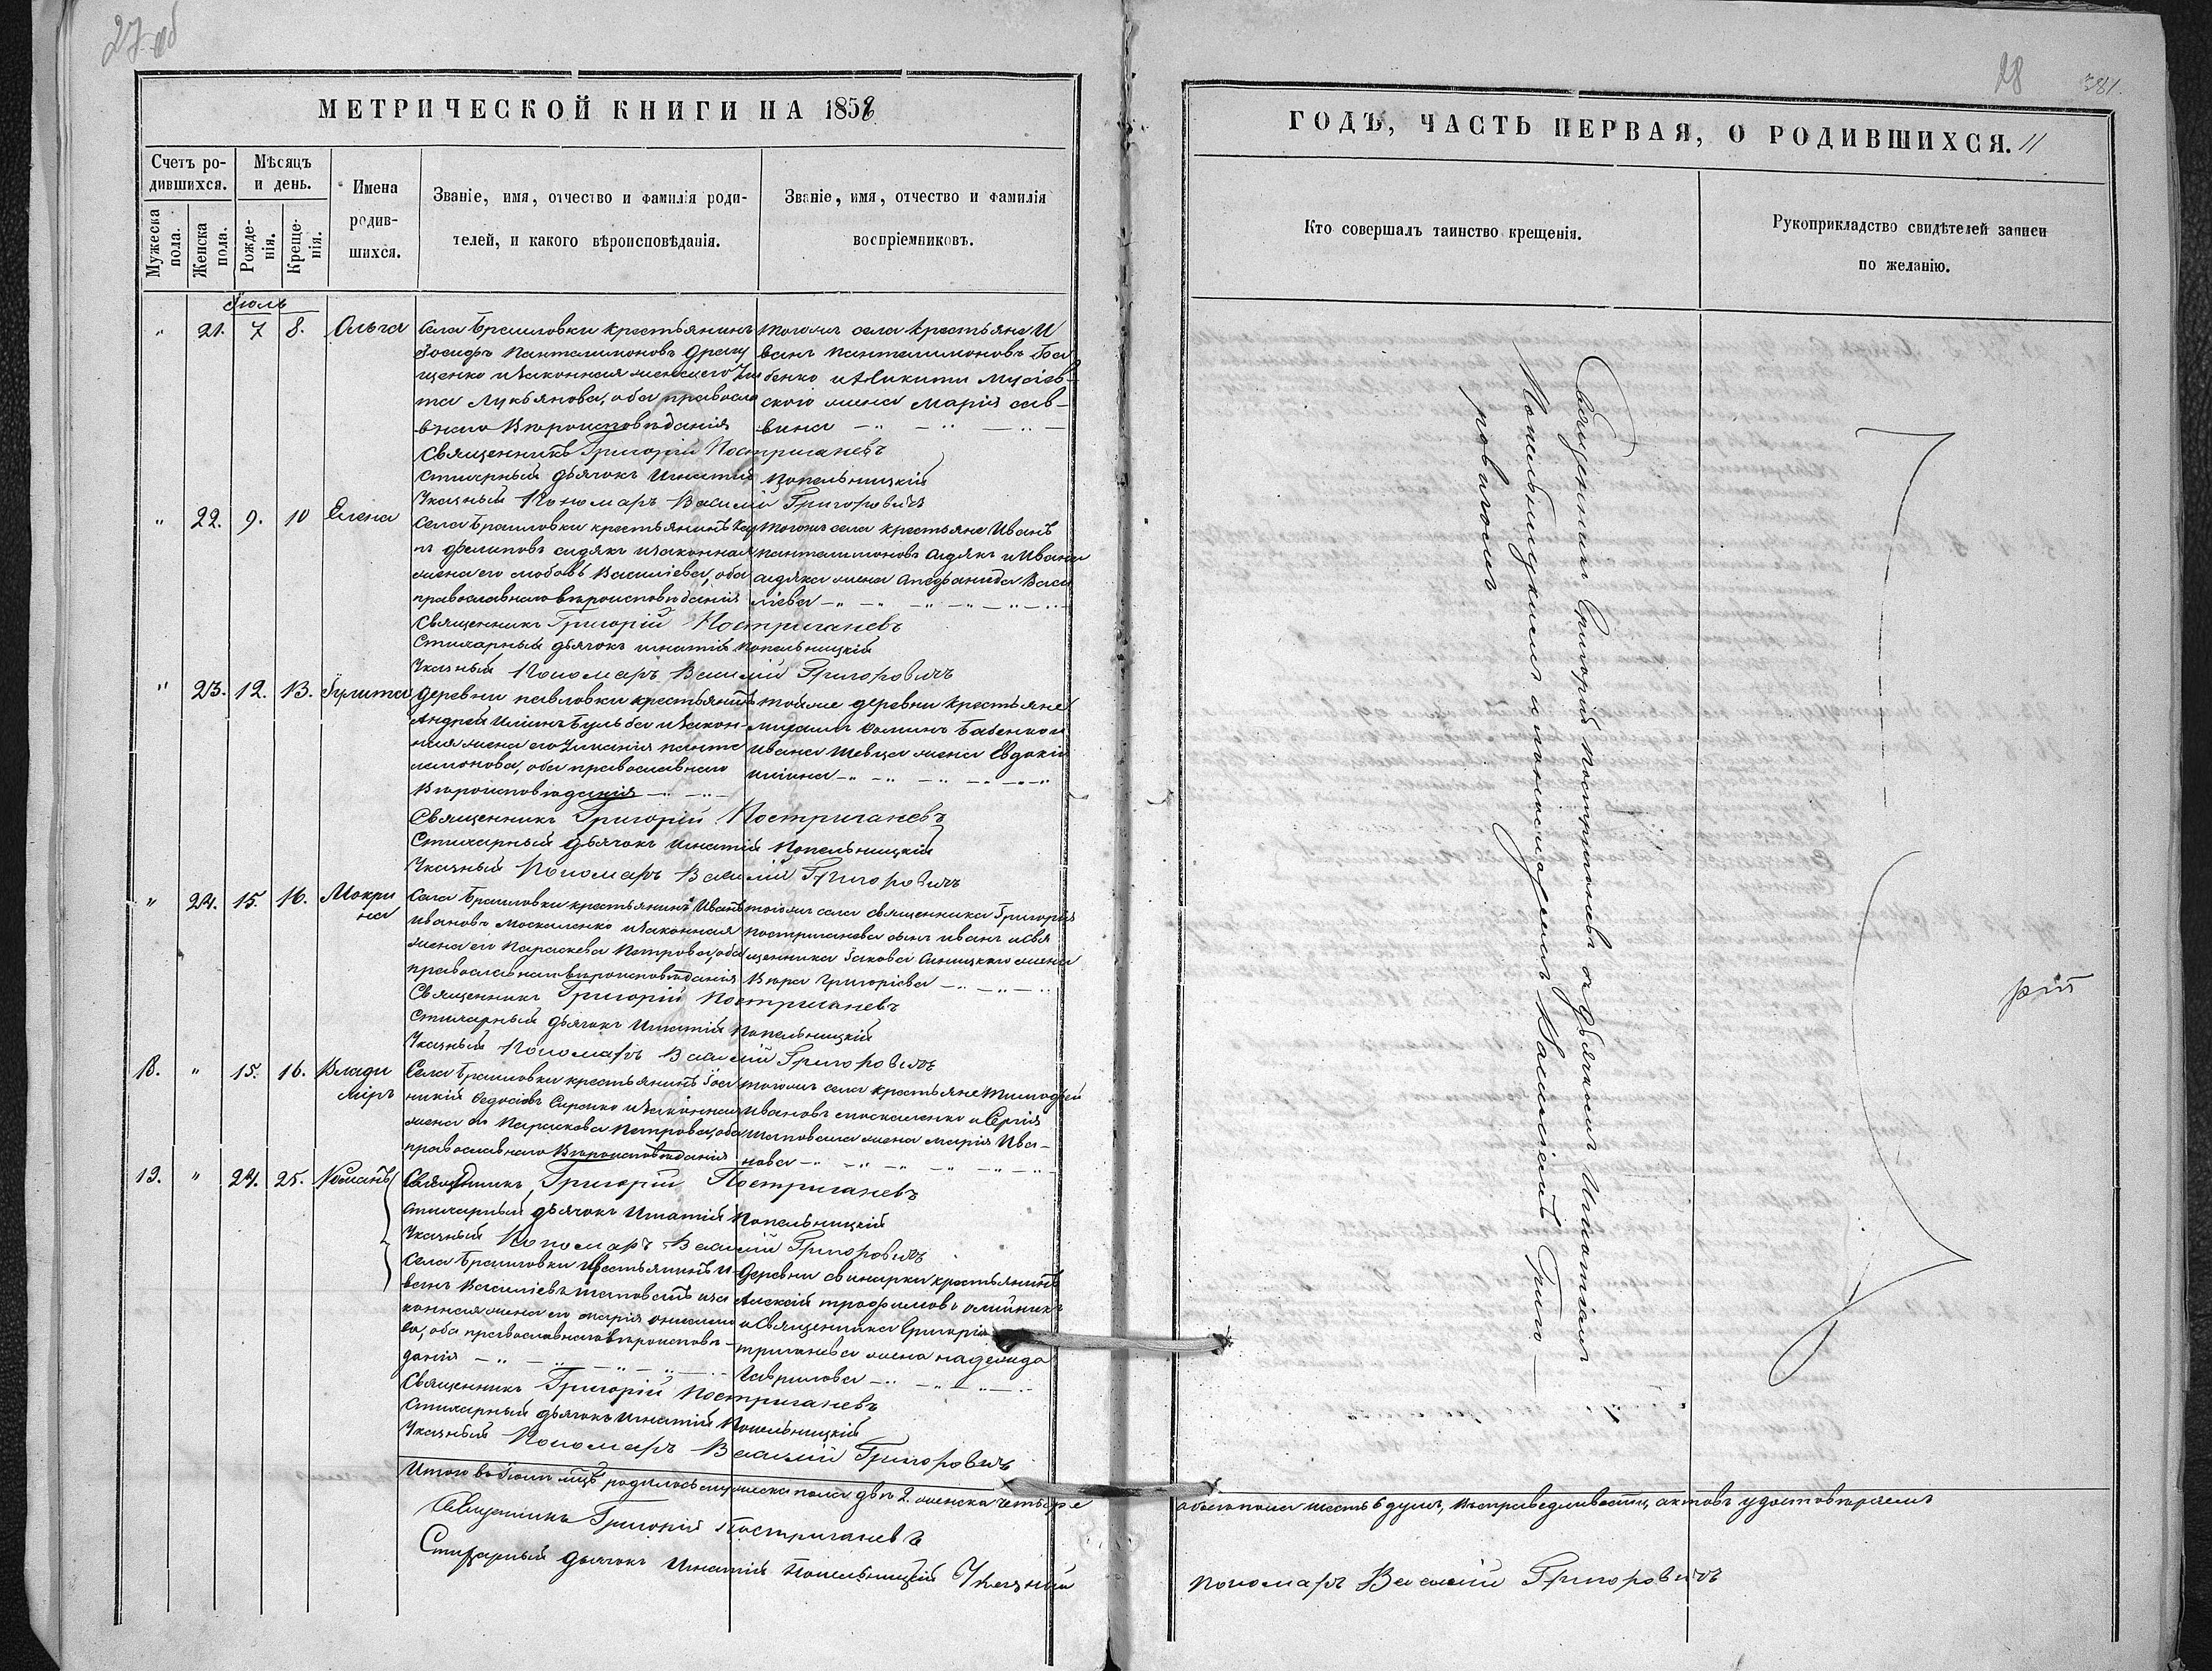 27 об
МЕТРИЧЕСКОЙ КНИГИ НА 1858
Счетъ ро-
дившихся.
Мужеска
пола.
Женска
пола.
Мѣсяцъ
и день.
Рожде-
нія.
Креще-
нія.
Имена
родив-
шихся.
Званіе, имя, отчество и фамилія роди-
телей, и какого вѣроисповѣданія.
Званіе, имя, отчество и фамилія
воспріемниковъ.
Іюль
" 21. 7 8. Ольга
Села Браиловки крестьянинъ
Іосифъ Пантелимоновъ
щенко и законная жена его
та Лукьянова, оба правосла
внаго Вѣроисповѣданія
тогожъ села крестьяне И
ванъ Пантелимоновъ Ба
бенко и Никиты Мусіев-
ского жена Марія Сав-
вина
Священникъ Григорій Постригачевъ
Стихарный дьячокъ Игнатій Копельницкій
Указный Пономарь Василій Григоровичъ
" 22. 9. 10 Елена
Села Браиловки крестьянинъ
Филиповъ Сидякъ и законная
жена его Любовь Василіева, оба
православнаго вѣроисповѣданія
тогожъ села крестьяне Иванъ
Пантелимоновъ Сидякъ и Ивана
Сидяка жена Васи
ліева
Священникъ Григорій Постригачевъ
Стихарный дьячокъ Игнатій Копельницкій
Указный Пономарь Василій Григоровичъ
" 23. 12. 13. Іулита
деревни Павловки крестьянинъ
Андрей Ильинъ Бульба и закон-
ная жена его Уліанія Панте
лимонова, оба православнаго
Вѣроисповѣданія
тойже деревни крестьяне
Михаилъ Фоминъ Бабенко и
Ивана Шевца жена Евдокія
Ильина
Священникъ Григорій Постригачевъ
Стихарный дьячокъ Игнатій Копельницкій
Указный Пономарь Василій Григоровичъ
" 24. 15. 16. Мокри
на
Села Браиловки крестьянинъ Иванъ
Ивановъ Москаленко и законная
жена его Параскева Петрова, оба
православнаго вѣроисповѣданія
тогожъ села священника Григорія
Постригачева сынъ Иванъ и свя
щенника Іакова Синицкаго жена
Вѣра Григоріева
Священникъ Григорій Постригачевъ
Стихарный дьячокъ Игнатій Копельницкій
Указный Пономарь Василій Григоровичъ
18. " 15. 16. Влади
міръ
Села Браиловки крестьянинъ Іоа
никій Федосіевъ Сиренко и законная
жена его Параскева Петрова, оба
православнаго Вѣроисповѣданія
тогожъ села крестьяне Тимофей
Ивановъ Москаленко и Сергія
Шаповала жена Марія Ива-
нова
19. " 24. 25. Романъ
Священникъ Григорій Постригачевъ
Стихарный дьячокъ Игнатій Копельницкій
Указный Пономарь Василій Григоровичъ
Села Браиловки крестьянинъ И-
ванъ Василіевъ Шаповалъ и за
конная жена его Марія
ва, оба православнаго вѣроисповѣ-
данія
деревни Свинарки крестьянинъ
Алексій Трофимовъ Олійникъ
и Священника Григорія
тригачева жена Надежда
Гаврилова
Священникъ Григорій Постригачевъ
Стихарный дьячокъ Игнатій Копельницкій
Указный Пономарь Василій Григоровичъ
Итого въ Іюлѣ мцѣ родилось мужеска пола два 2. женска четыре
Священникъ Григорій Постригачевъ
Стихарный дьячокъ Игнатій Копельницкій Указный
28 381.
ГОДЪ, ЧАСТЬ ПЕРВАЯ, О РОДИВШИХСЯ. 11
Кто совершалъ таинство крещенія.
Рукоприкладство свидѣтелей записи
по желанію.
Священникъ Григорій Постригачевъ съ дьячкомъ Игнатіемъ
Копельницкимъ и пономаремъ Василіемъ Григо-
ровичомъ
обоего пола шесть 6 душъ, въ справедливости актовъ удостовѣряемъ
пономарь Василій Григоровичъ